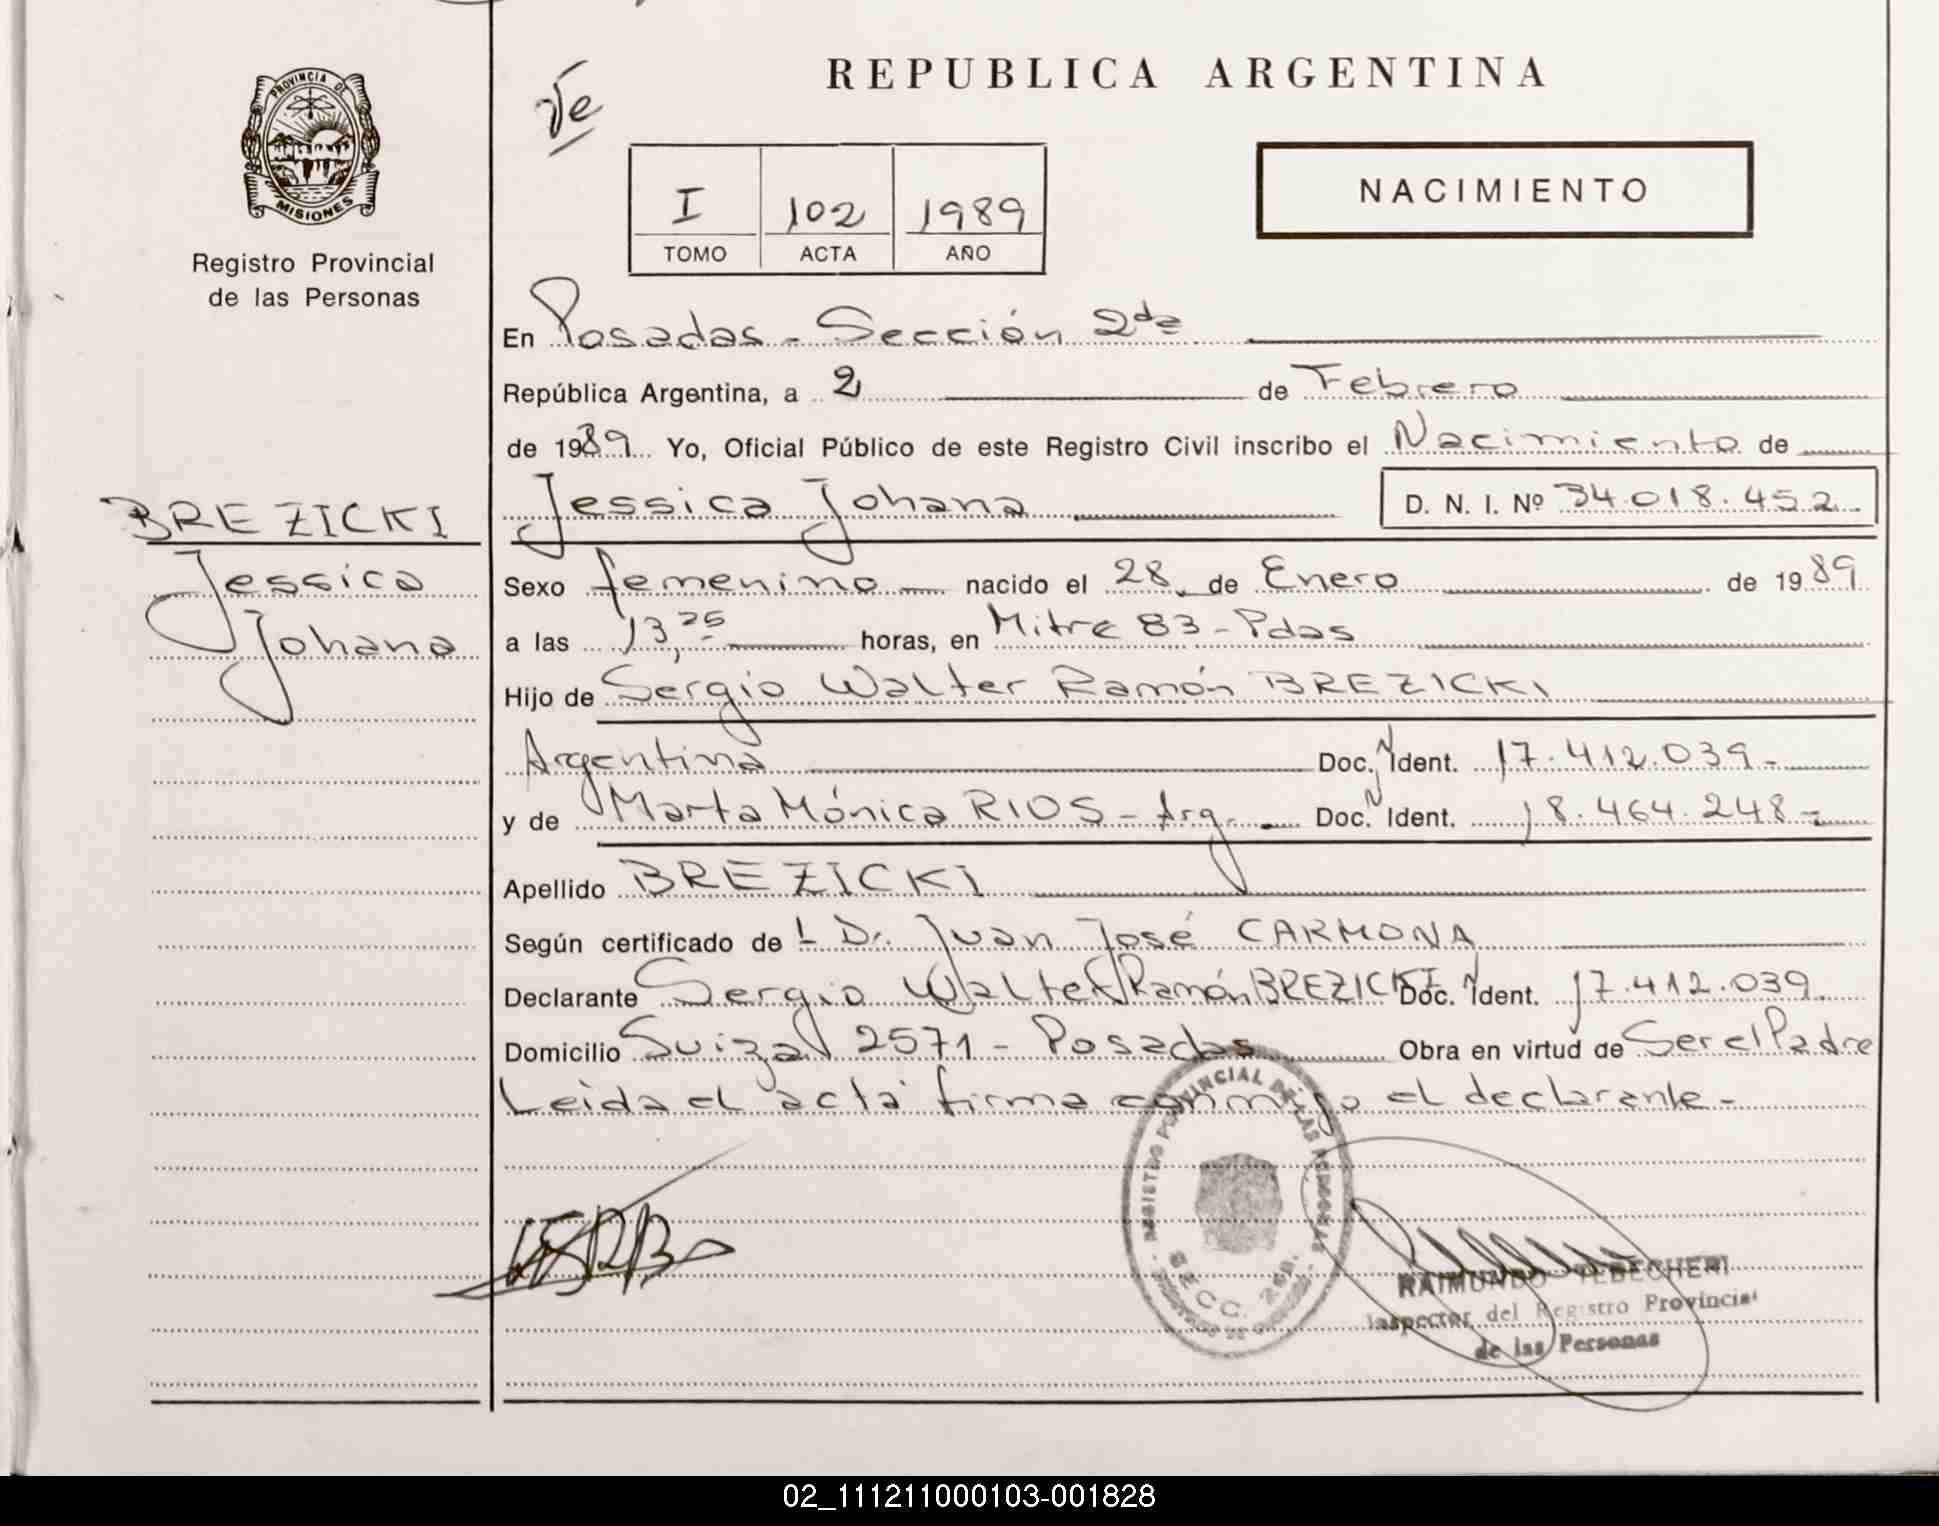 REPUBLICA ARGENTINA
PROVINCIA DE
MISIONES
Registro Provincial
de las Personas
I 102 1989
TOMO ACTA AÑO
NACIMIENTO
En Posadas - Sección 2da
República Argentina, a 2 de Febrero
de 1989 Yo, Oficial Público de este Registro Civil inscribo el Nacimiento de
Jessica Johana D. N. I. Nº 34.018.452
BREZICKI
Jessica
Johana
Sexo femenino nacido el 28 de Enero de 1989
a las 13,25 horas, en Mitre 83 - Pdas
Hijo de Sergio Walter Ramón BREZICKI
Argentina Doc. Ident. 17.412.039.-
y de Marta Mónica RIOS - Arg. Doc. Ident. 18.464.248-
Apellido BREZICKI
Según certificado de l Dr. Juan José CARMONA
Declarante Sergio Walter Ramón BREZICKI Doc. Ident. 17.412.039.
Domicilio Suiza 2571 - Posadas Obra en virtud de Ser el Padre
Leida el acta firma conmigo el declarante -
REGISTRO PROVINCIAL DE LAS PERSONAS
SECC. 2da.
RAIMUNDO
Inspector del Registro Provincial
de las Personas
02_111211000103-001828